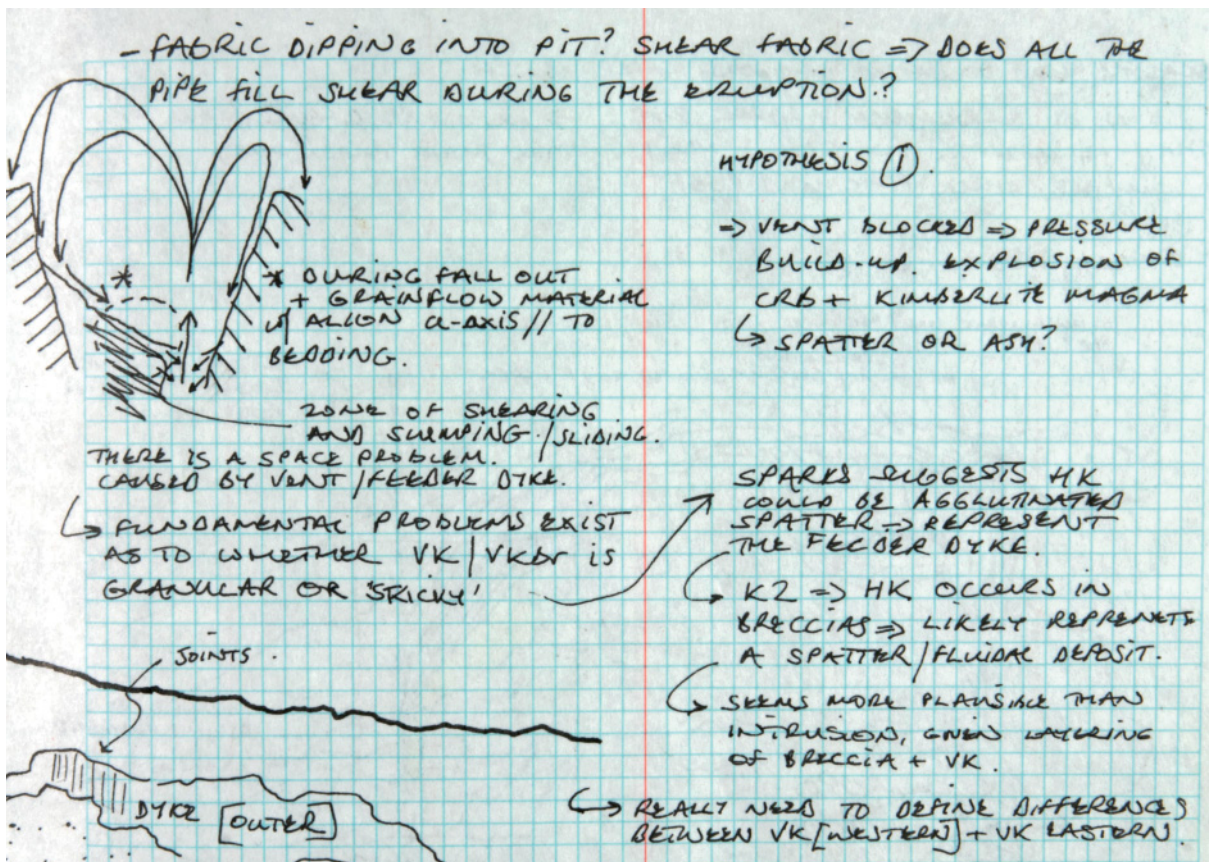 - FABRIC DIPPING INTO PIT? SHEAR FABRIC => DOES ALL THE
PIPE FILL SHEAR DURING THE ERUPTION?
* DURING FALL OUT
+ GRAINFLOW MATERIAL
w/ ALIGN a-AXIS // TO
BEDDING.
*
ZONE OF SHEARING
AND SLUMPING / SLIDING.
THERE IS A SPACE PROBLEM.
CAUSED BY VENT / FEEDER DYKE.
↳ FUNDAMENTAL PROBLEMS EXIST
AS TO WHETHER VK / VKBr IS
GRANULAR OR 'STICKY'
JOINTS.
DYKE [OUTER]
HYPOTHESIS ①.
=> VENT BLOCKED => PRESSURE
BUILD-UP. EXPLOSION OF
CRB + KIMBERLITE MAGMA
↳ SPATTER OR ASH?
SPARKS SUGGESTS HK
COULD BE AGGLUTINATED
SPATTER => REPRESENT
THE FEEDER DYKE.
↳ K2 => HK OCCURS IN
BRECCIAS => LIKELY REPRENETS
A SPATTER / FLUIDAL DEPOSIT.
↳ SEEMS MORE PLAUSIBLE THAN
INTRUSION, GIVEN LAYERING
OF BRECCIA + VK.
↳ REALLY NEED TO DEFINE DIFFERENCES
BETWEEN VK [WESTERN] + VK EASTERN.